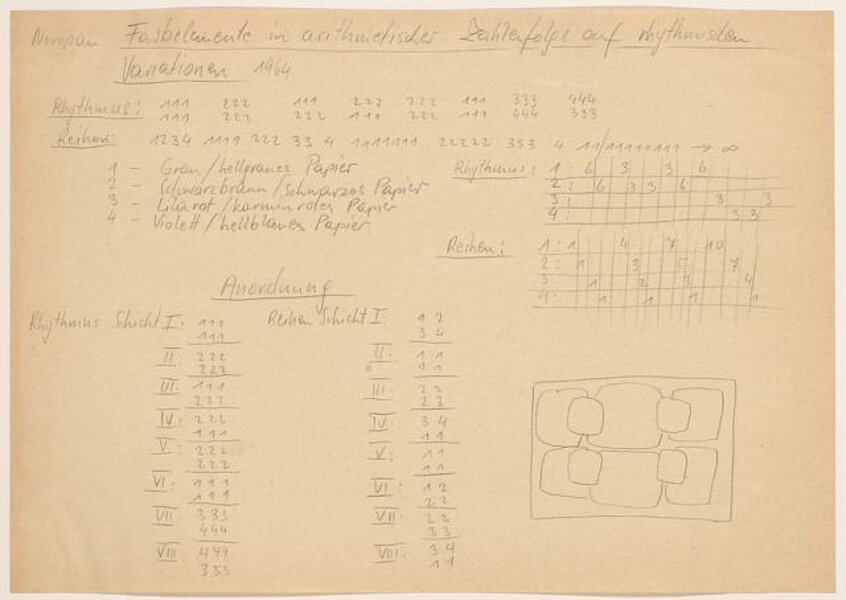 Novopan Farbelemente in arithmetischer Zahlenfolge auf rhythmischen
Variationen 1964
Rhythmus: 111 222 111 222 222 111 333 444
111 222 222 111 222 111 444 333
Reihen: 1234 1111 222 33 4 1111111 22222 333 4 1111111111 → ∞
1 – Grau/hellgraues Papier
2 – Schwarzbraun/schwarzes Papier
3 – Lilarot/karminrotes Papier
4 – Violett/hellblaues Papier
Rhythmus: 1: 6 3 3 6
2: 6 3 3 6
3: 3 3
4: 3 3
Reihen: 1: 1 4 7 10
2: 1 3 5 7
3: 1 2 3 4
4: 1 1 1 1
Anordnung
Rhythmus Schicht I: 111
111
II: 222
222
III: 111
222
IV: 222
111
V: 222
222
VI: 111
111
VII: 333
444
VIII: 444
333
Reihen Schicht I: 12
34
II: 11
11
III: 22
23
IV: 34
11
V: 11
11
VI: 12
22
VII: 22
33
VIII: 34
11